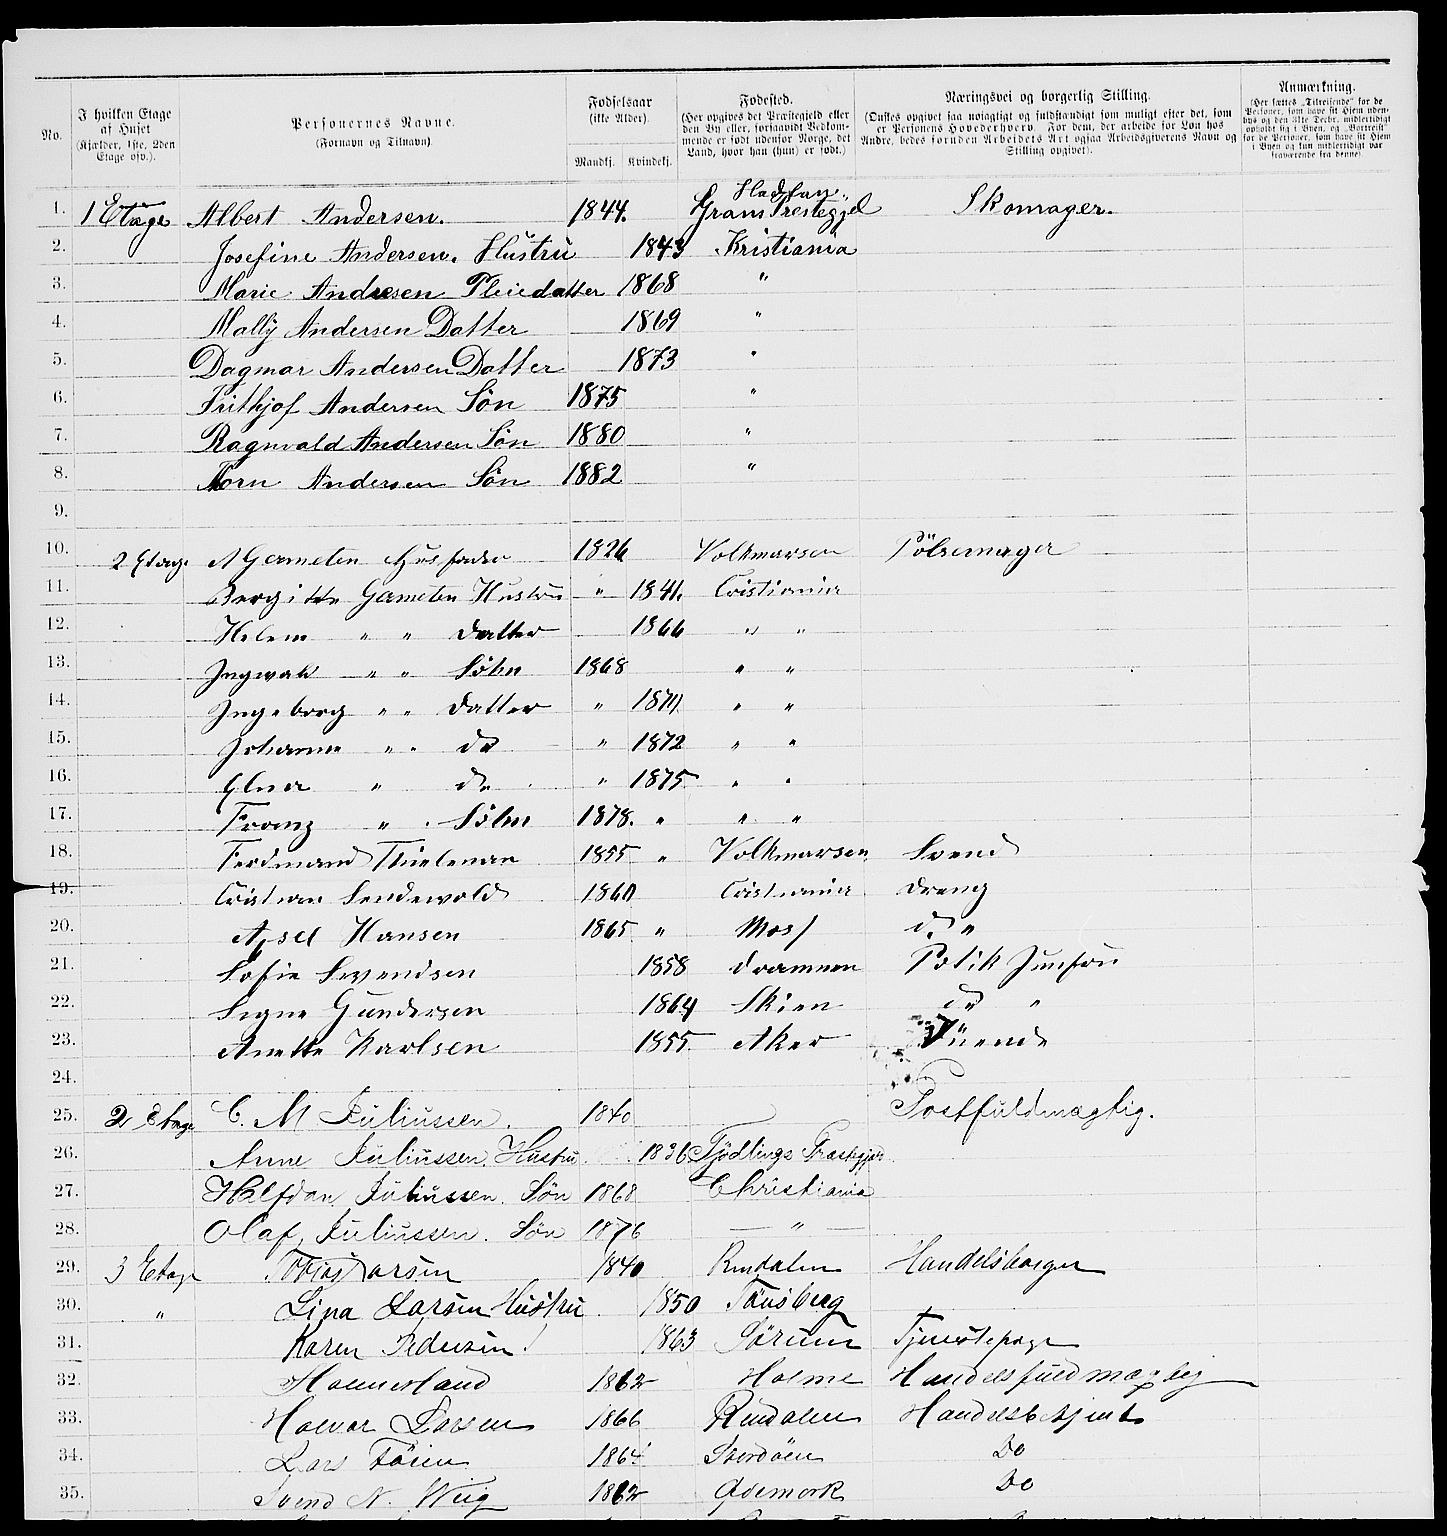 No.
I hvilken Etage af Huset (Kjælder, 1ste, 2den Etage osv.).
Personernes Navne. (Fornavn og Tilnavn).
Fødselsaar (ikke Alder). Mandkj. Kvindekj.
Fødested. (Her opgives det Præstegjeld eller den By eller, forsaavidt Vedkommende er født udenfor Norge, det Land, hvor han (hun) er født.)
Næringsvei og borgerlig Stilling. (Ønskes opgivet saa nøiagtigt og fuldstændigt som muligt efter det, som er Personens Hovederhverv. For dem, der arbeide for Løn hos Andre, bedes foruden Arbeidets Art ogsaa Arbeidsgiverens Navn og Stilling opgivet).
Anmærkning. (Her sættes „Tilreisende“ for de Personer, som have sit Hjem udenbys og den 31te Decbr. midlertidigt opholdt sig i Byen, og „Bortreist“ for de Personer, som have sit Hjem i Byen og kun midlertidigt var fraværende fra denne).
1. 1 Etage Albert Andersen. 1844. Grans Prestegjel Skomager.
2. Josefine Andersen. Hustru 1843 Kristiania
3. Marie Andresen Pleiedatter 1868 "
4. Mally Andersen Datter 1869 "
5. Dagmar Andersen Datter 1873 "
6. Frithjof Andersen Søn 1875 "
7. Ragnvald Andersen Søn 1880 "
8. Andersen Søn 1882 "
9.
10. 2 Etag. A Germeten Husfader 1826 Volkmarsen Pölsemager
11. Bergitte Germeten Hustru " 1841. Cristiania
12. Helene " " Datter 1866 " "
13. Ingwald " " Söhn 1868 " "
14. Ingeborg " " Datter " 1871 " "
15. Johanne " " do " 1872 " "
16. Elna " do " 1875 " "
17. Franz " " Söhn 1878. " " "
18. Ferdinand Thieleman 1855 " Volkmarsen Svend
19. Cristian Sendewold 1860 Cristiania Dreng
20. Axel Hansen 1865 " Moss do "
21. Sofie Swendsen 1858 Drammen Butik Jumfru
22. Signe Gundersen 1864 Skien do "
23. Anette Karlsen 1855 Aker Tiiende
24.
25. 2 Etage C. M Juliussen. 1840 Postfuldmægtig.
26. Anne Juliussen. Hustru 1836 Tjödlings Præstegjeld
27. Halfdan Juliussen. Søn 1868 Christiania
28. Olaf Juliussen. Søn 1876 — " —
29. 3 Etage Tobias Larsen 1840 Rendalen Handelsborger
30. " Lina Larsen Hustru 1850 Tønsberg
31. Karen Pedersen 1863 Sørum Tjenestepige
32. 1862 Holme Handelsfuldmægtig
33. Halvor Larsen 1866 Rendalen Handelsbetjent
34. Lars Föien 1864 Do
35. Svend N. Wiig 1862 Ødemark Do